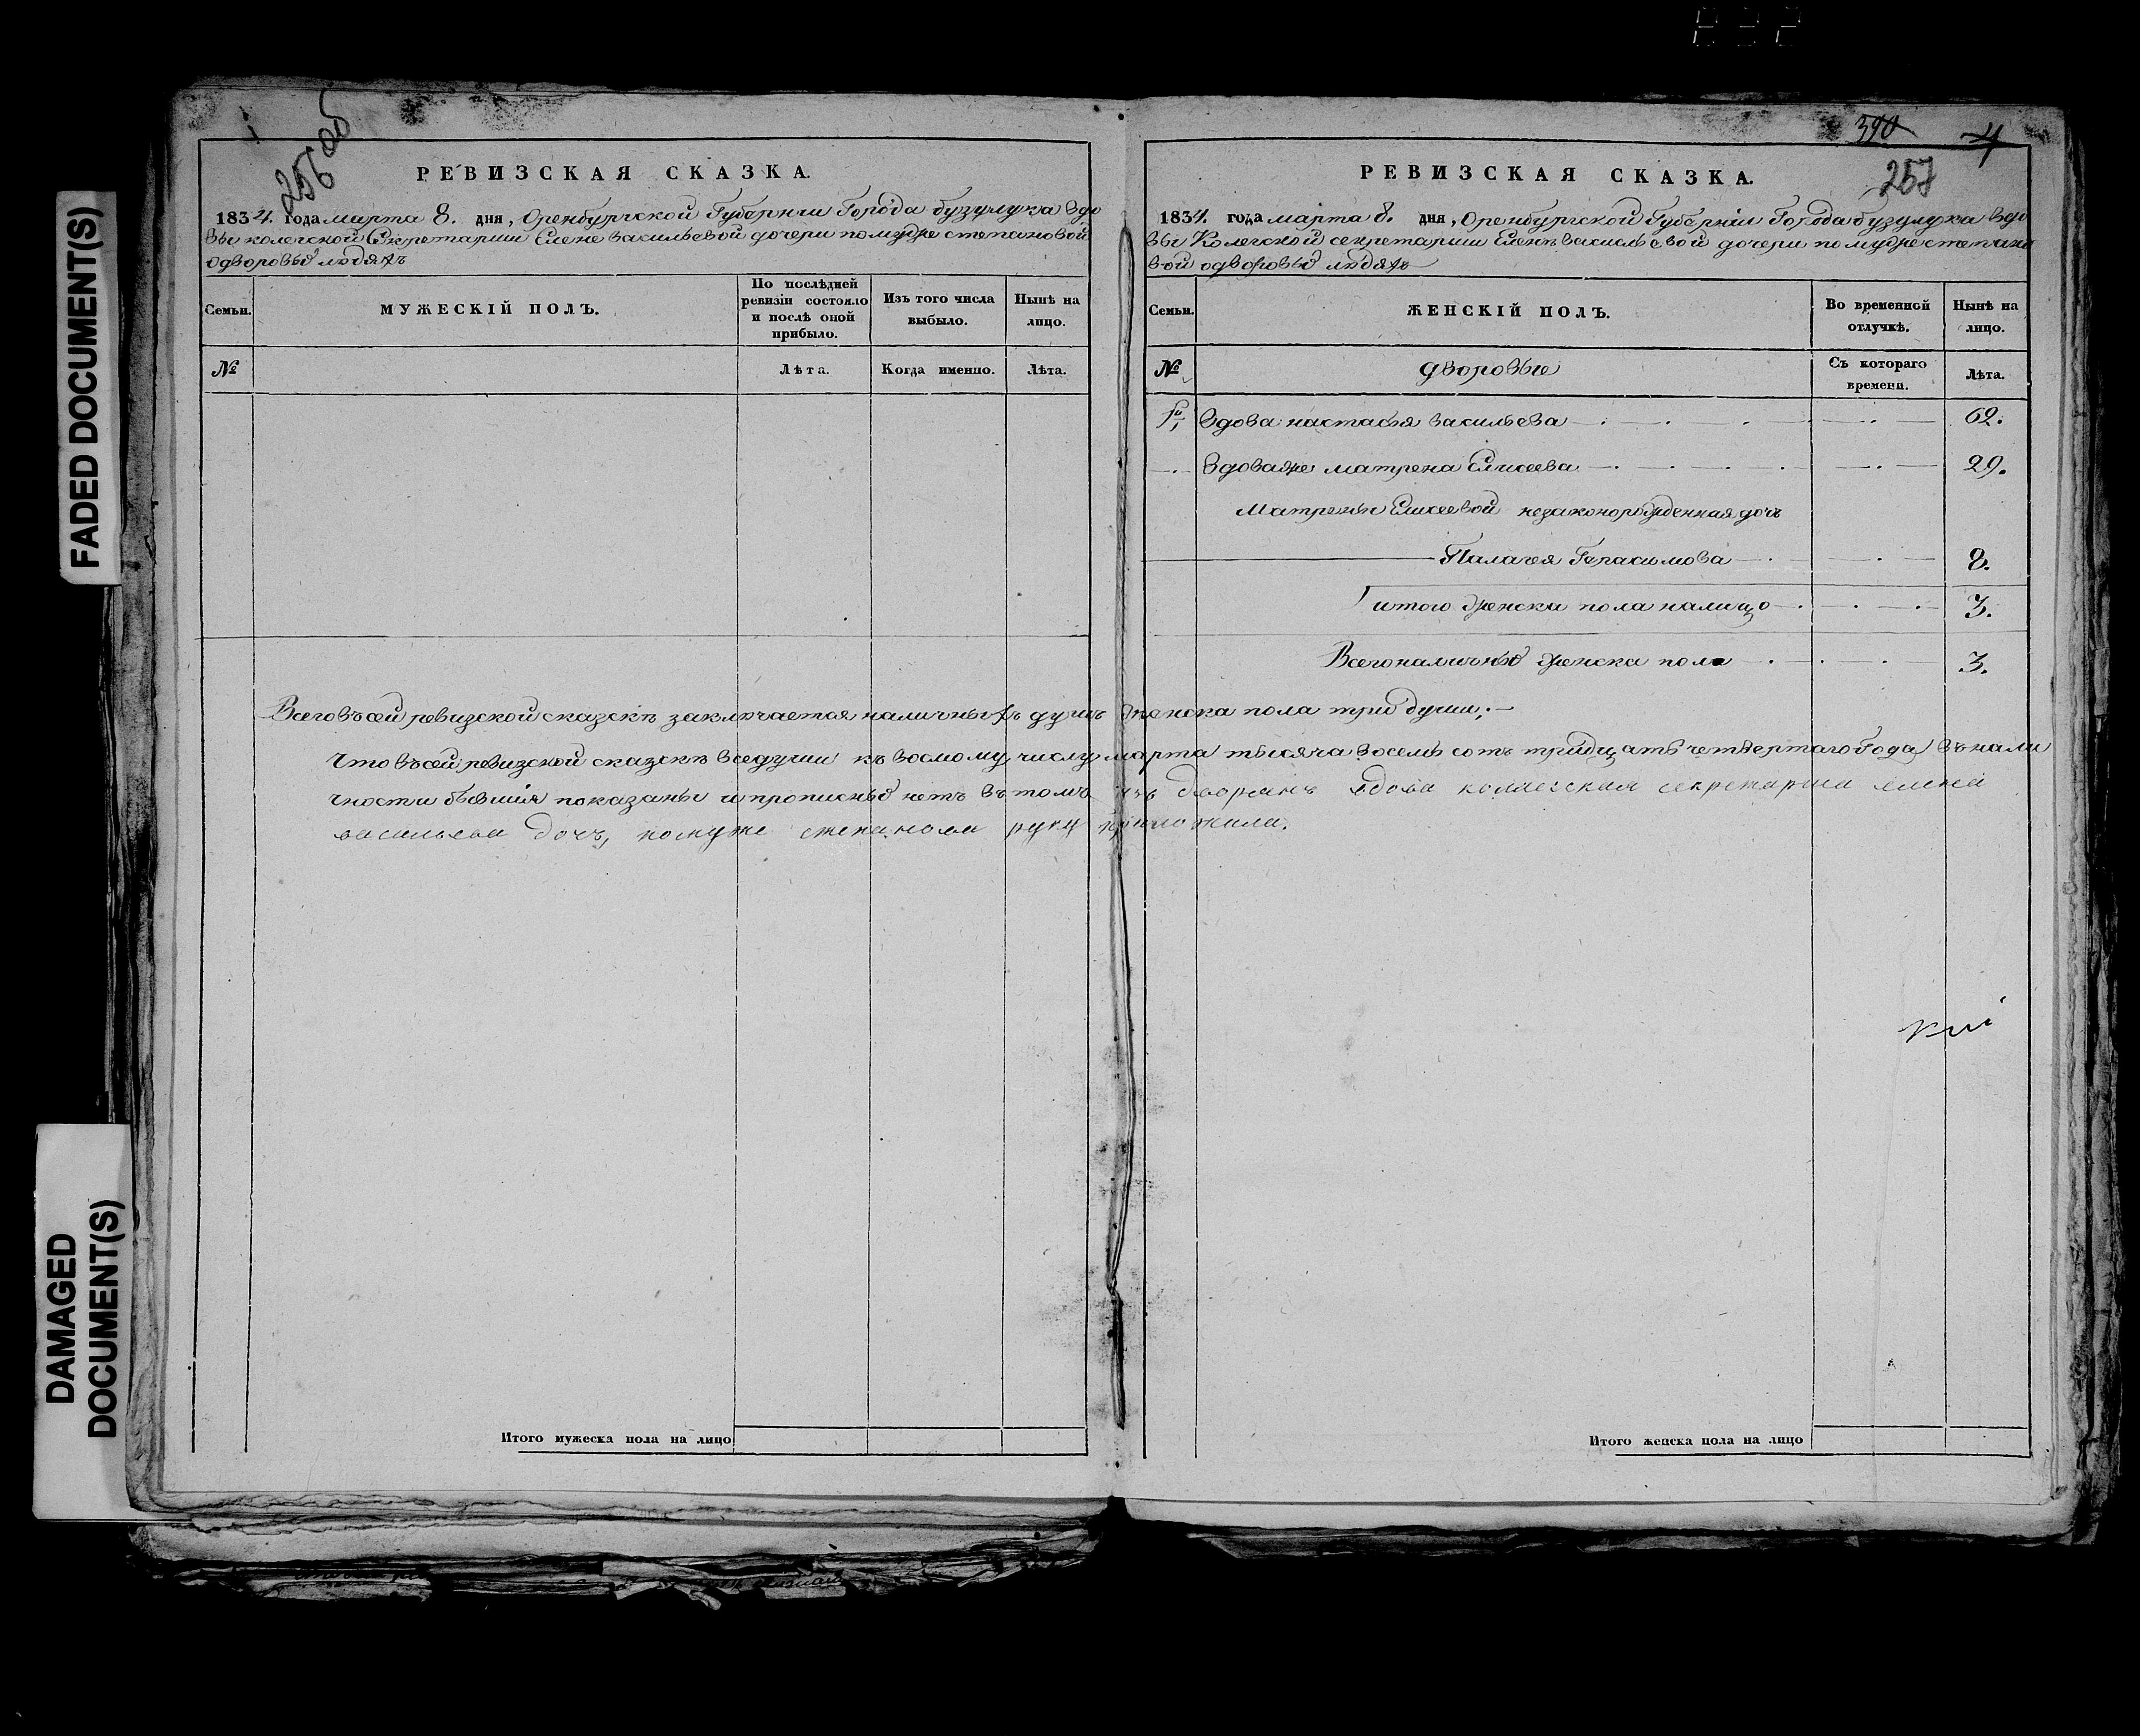 FADED DOCUMENT(S)
DAMAGED
DOCUMENT(S)
256 об
РЕВИЗСКАЯ СКАЗКА.
1834. года марта 8. дня, Оренбургской Губернии Города бузулука вдо
вы колегской Секретарши Елене васильевой дочери помуже степановой
одворовых людяхъ
Семьи.
МУЖЕСКІЙ ПОЛЪ.
По послѣдней
ревизіи состояло
и послѣ оной
прибыло.
Изъ того числа
выбыло.
Нынѣ на
лицо.
№
Лѣта.
Когда именно.
Лѣта.
390
4
257
РЕВИЗСКАЯ СКАЗКА.
1834. года марта 8. дня, Оренбургской Губерніи Города бузулука вдо
вы Колегской секретарши Еленѣ васильевой дочери помуже степано
вой одворовых людяхъ
Семьи.
ЖЕНСКІЙ ПОЛЪ.
Во временной
отлучкѣ.
Нынѣ на
лицо.
№
дворовые
Съ котораго
времени.
Лѣта.
вдова настасья васильева 62.
вдоваже матрена Елисеева 29.
Матрены Елисеевой незаконорожденная дочь
Палагея Герасимова 8.
итого женска пола налицо 3.
Всегоналичных женска пола 3.
Всеговъсей ревизской сказскѣ заключается наличныхъ душъ женска пола три души;
Что въсей ревизской сказскѣ вседуши къ восмому числу марта тысяча восемь сотъ тридцать четвертаго года въ нали
чности бывшия показаны и прописных нетъ въ томъ изъ дворянъ вдова коллегская секретарша елена
васильева дочь, помуже степанова руку приложила.
Итого мужеска пола на лицо
Итого женска пола на лицо